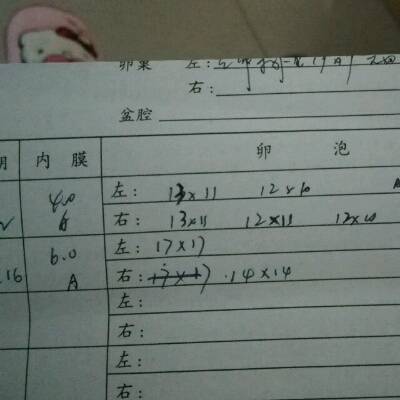 卵巢 左:
右:
盆腔
期 内膜 卵泡
4.0 左: 13×11 12×10
A 右: 13×11 12×11 12×10
6.0 左: 17×17
.16 A 右: 17×17 14×14
左:
右:
左:
右: